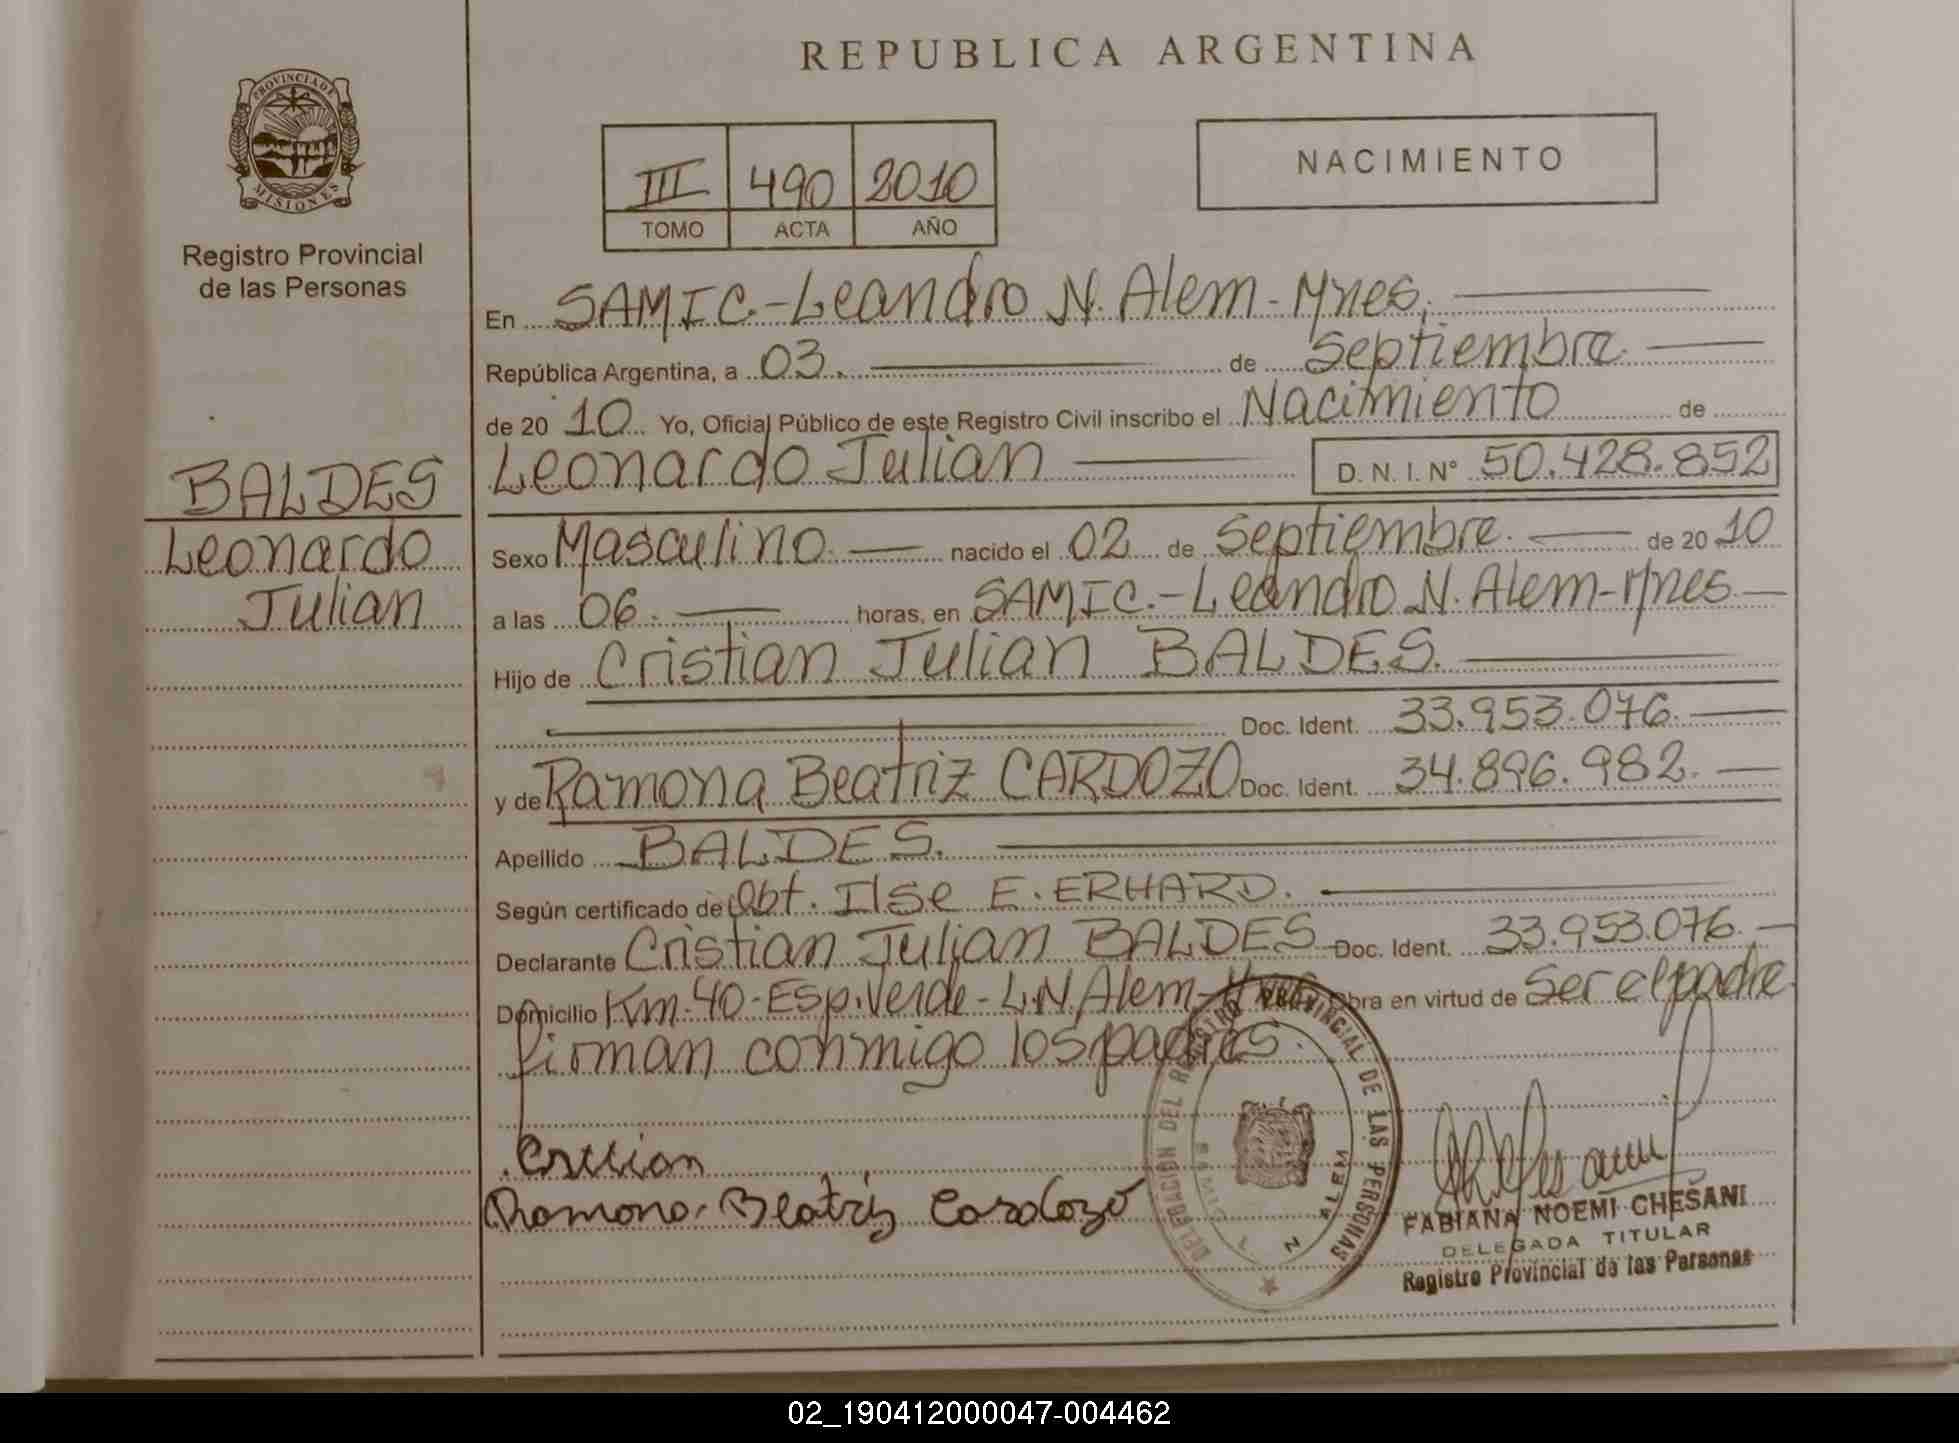 REPUBLICA ARGENTINA
PROVINCIA DE MISIONES
Registro Provincial
de las Personas
III 490 2010
TOMO ACTA AÑO
NACIMIENTO
En SAMIC.-Leandro N. Alem - Mnes,
República Argentina, a 03. de Septiembre
de 20 10 Yo, Oficial Público de este Registro Civil inscribo el Nacimiento de
Leonardo Julian D.N.I.N° 50.428.852
BALDES
Leonardo
Julian
Sexo Masculino. nacido el 02 de Septiembre. de 20 10
a las 06. horas, en SAMIC.-Leandro N. Alem-Mnes
Hijo de Cristian Julian BALDES.
Doc. Ident. 33.953.076.
y de Ramona Beatriz CARDOZO Doc. Ident. 34.896.982.
Apellido BALDES.
Según certificado de Obt. Ilse E. ERHARD.
Declarante Cristian Julian BALDES Doc. Ident. 33.953.076.
Domicilio Km.40-Esp.Verde-L.N.Alem- Obra en virtud de Ser el padre
firman conmigo los padres.
DELEGACION DEL REGISTRO PROVINCIAL DE LAS PERSONAS
L N ALEM
Ramona Beatriz Cardozo
FABIANA NOEMI CHESANI
DELEGADA TITULAR
Registro Provincial de las Personas
02_190412000047-004462